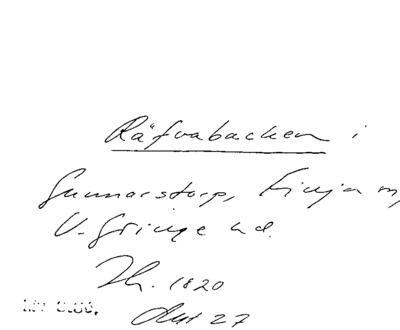 Räfvabacken i
Gunnarstorp, Finja sn,
V. Göinge hd.
Th. 1820
Akt 27